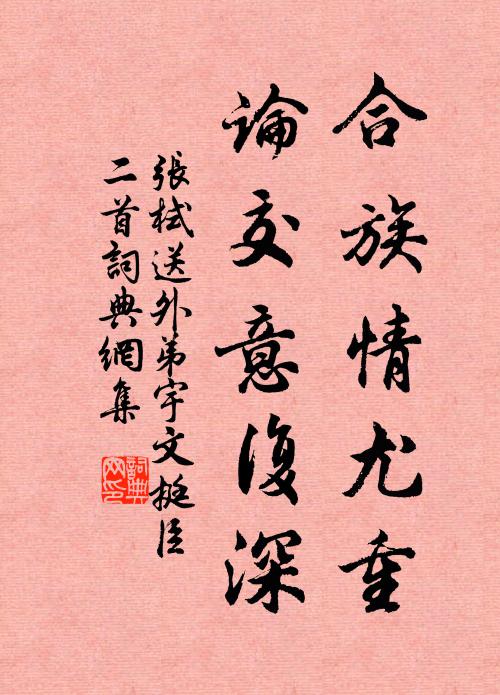 合族情尤重
論交意復深
張栻送外弟宇文挺臣
二首詞典網集
詞典網印